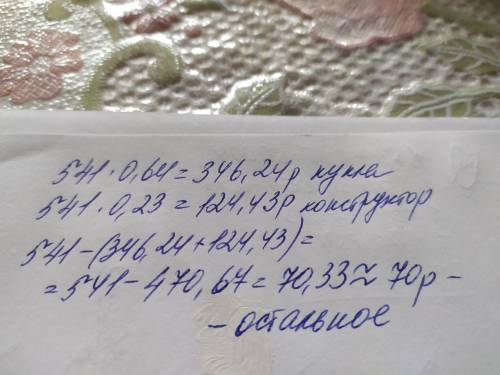 541 · 0,64 = 346,24р кукла
541 · 0,23 = 124,43р конструктор
541 - (346,24 + 124,43) =
= 541 - 470,67 = 70,33 ≈ 70р -
- остальное